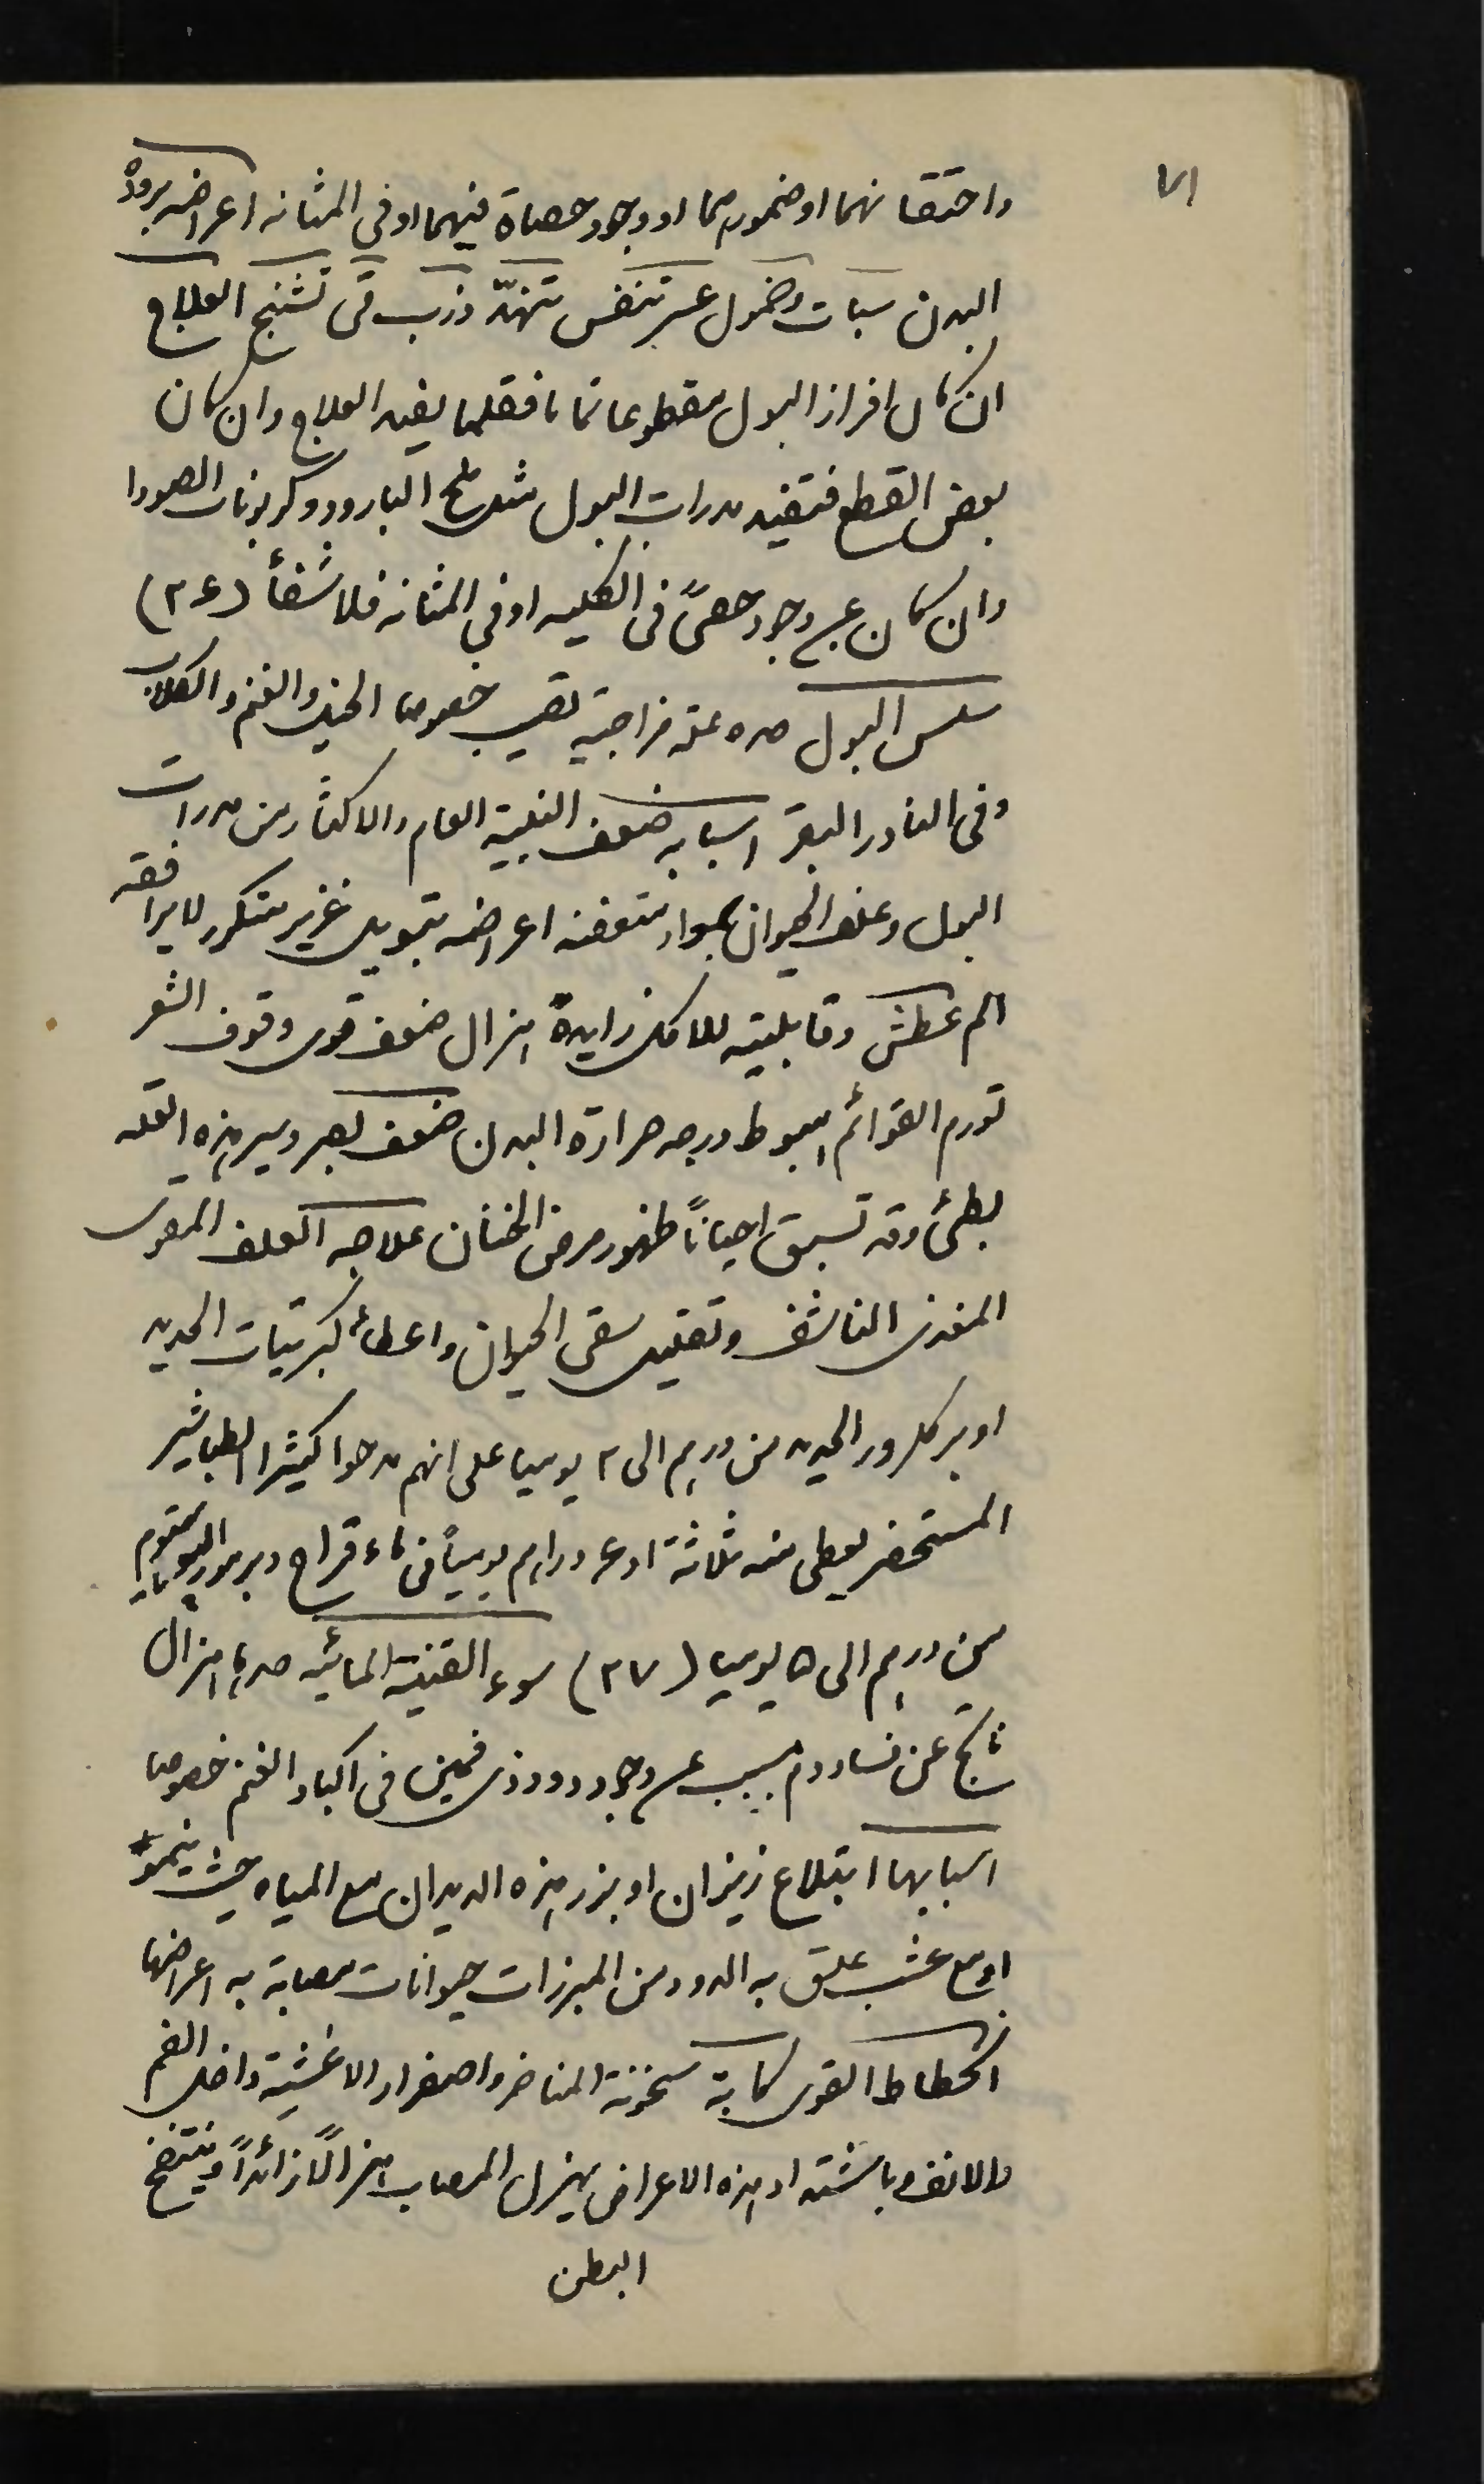 ٧١
واحتقانهما او ضمورهما او وجود حصاة فيهما او في المثانه اعراضه برودة
البدن سبات وخمول عسر تنفس تنهّد ذرب قئ تشنج العلاج
ان كان افراز البول مقطوعا تماما فقلما يفيد العلاج وان كان
بعض القطع فتفيد مدرات البول مثل ملح البارود وكربونات الصودا
وان كان عن وجود حصىً في الكليه او في المثانه فلا شفأ (٣٤)
سلس البول هذه علة مزاجية تصيب خصوصا الخيل والغنم والكلاب
وفي النادر البقر اسبابه ضعف البنية العام والاكثار من مدرات
البول وعلف الحيوان بمواد متعفنه اعراضه تبويل غزير متكرر لا يرافقه
الم عطش وقابلية للاكل زايدة هزال ضعف قوى وقوف الشعر
تورم القوائم هبوط درجه حرارة البدن ضعف بصر وسير هذه العله
بطئ وقد تسبق احياناً ظهور مرض الخنان علاجه العلف المقوى
المغذى الناشف وتقليل سقى الحيوان واعطأ كبريتات الحديد
او بركلرور الحديد من درهم الى ٢ يوميا على انهم مدحوا كثيرا الطباشير
المستحضر يعطى منه ثلاثة او ٤ دراهم يومياً في ماء قراح وبرمور البوتاسيوم
من درهم الى ٥ يوميا (٣٧) سوء القنية المائيه هذا هزال
ناتج عن فساد دم مسبب عن وجود دود ذى فمين في اكباد الغنم خصوصا
اسبابها ابتلاع زيزان او بزر هذه الديدان مع المياه حيث ينمو
او مع عشب علق به الدود من المبرزات حيوانات مصابة به اعراضها
انحطاط القوى كابة سخونة المناخر واصفرار الاغشية داخل الفم
والانف وباشتداد هذه الاعراض يهزل المصاب هزالاً زائداً وينتفخ
البطن